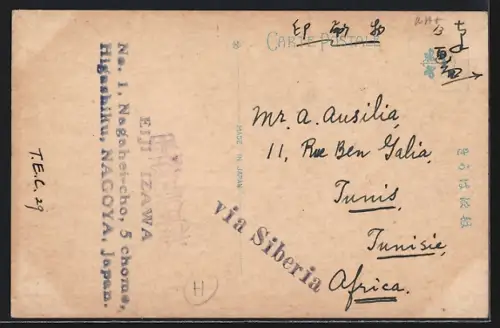 印刷物
CARTE POSTALE
EIJI IZAWA
No. 1, Nagahei-cho, 5 chome,
Higashiku, NAGOYA, Japan.
T.E.C. 29
MADE IN JAPAN
via Siberia
H
Mr. A. Ausilia,
11, Rue Ben Galia,
Tunis,
Tunisie,
Africa.